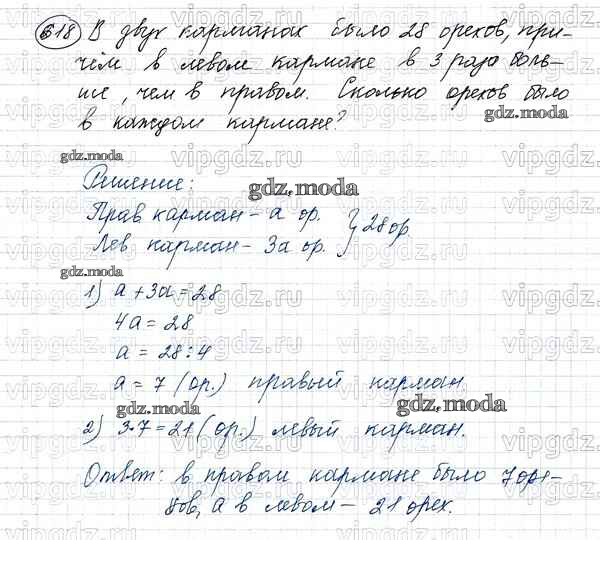 618 В двух карманах было 28 орехов, при-
чём в левом кармане в 3 раза боль-
ше, чем в правом. Сколько орехов было
в каждом кармане?
Решение:
Прав карман - а ор. } 28 ор
Лев. карман - 3а ор.
1) а + 3а = 28
4а = 28
а = 28 : 4
а = 7 (ор.) правый карман.
2) 3·7 = 21 (ор.) левый карман.
Ответ: в правом кармане было 7 оре-
хов, а в левом - 21 орех.
gdz.moda
vipgdz.ru